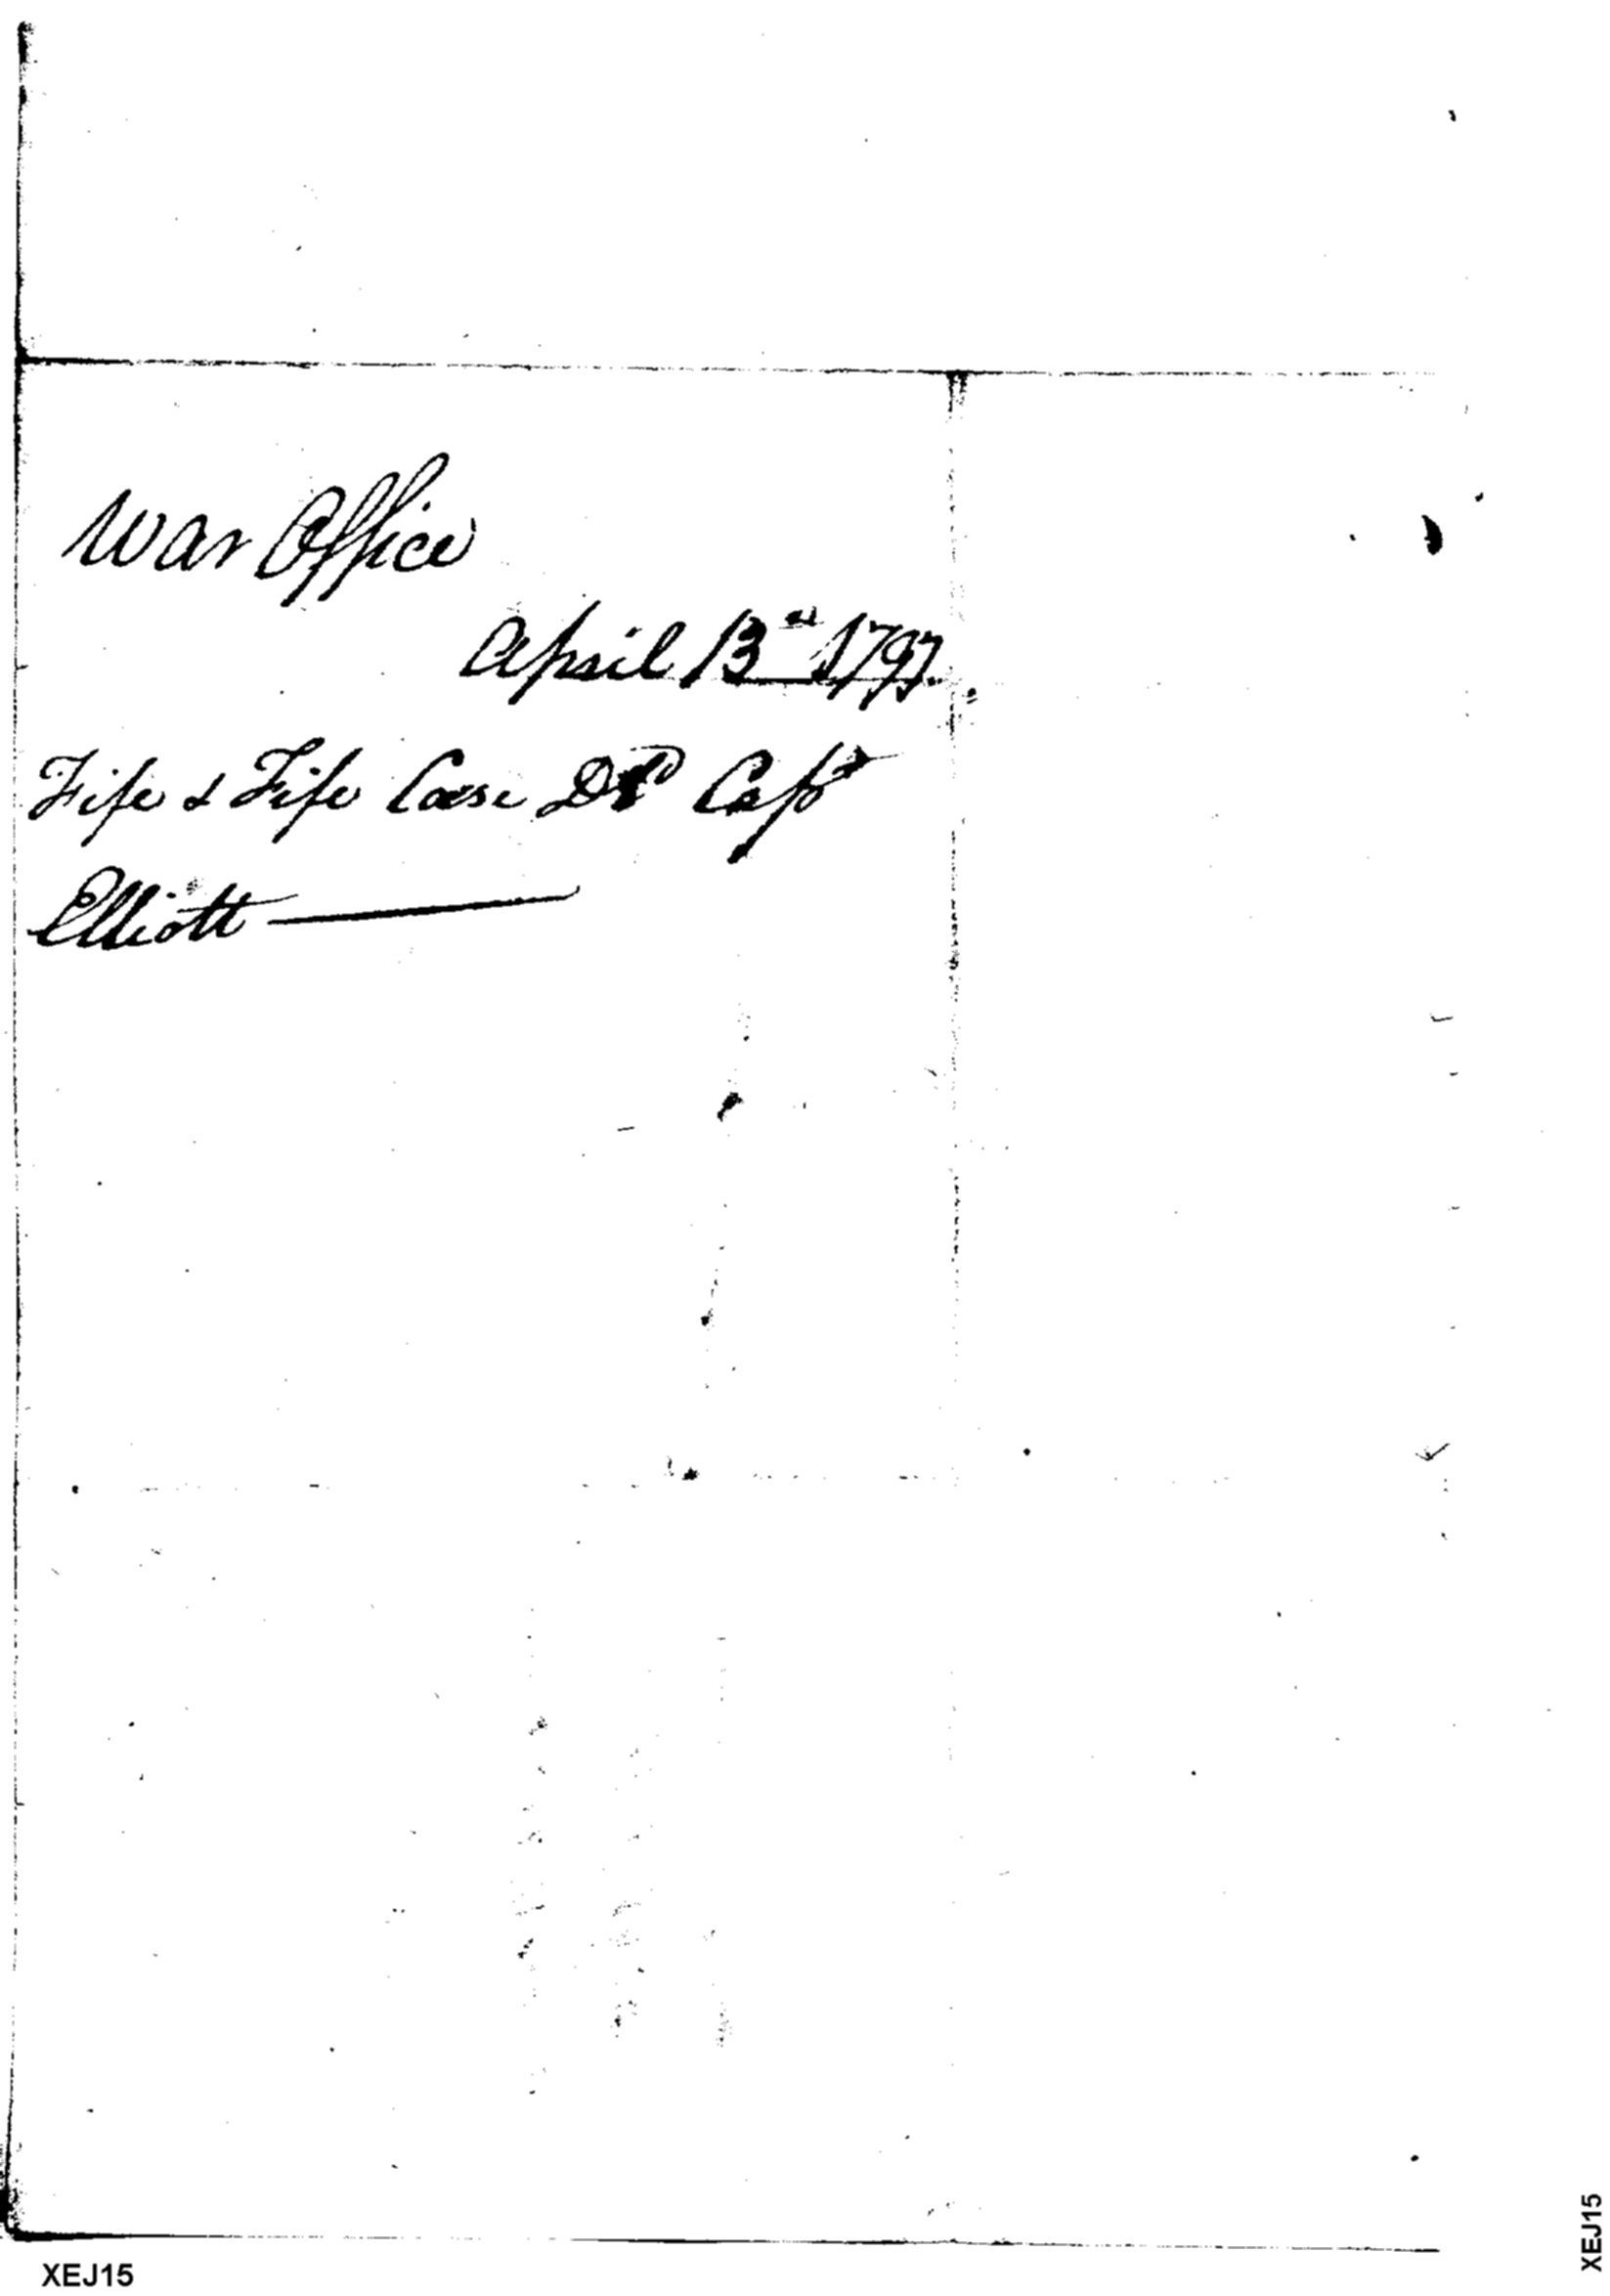 War Office
April 13th 1797.
Fife & Fife Case Dd Capt
Elliott
XEJ15
XEJ15